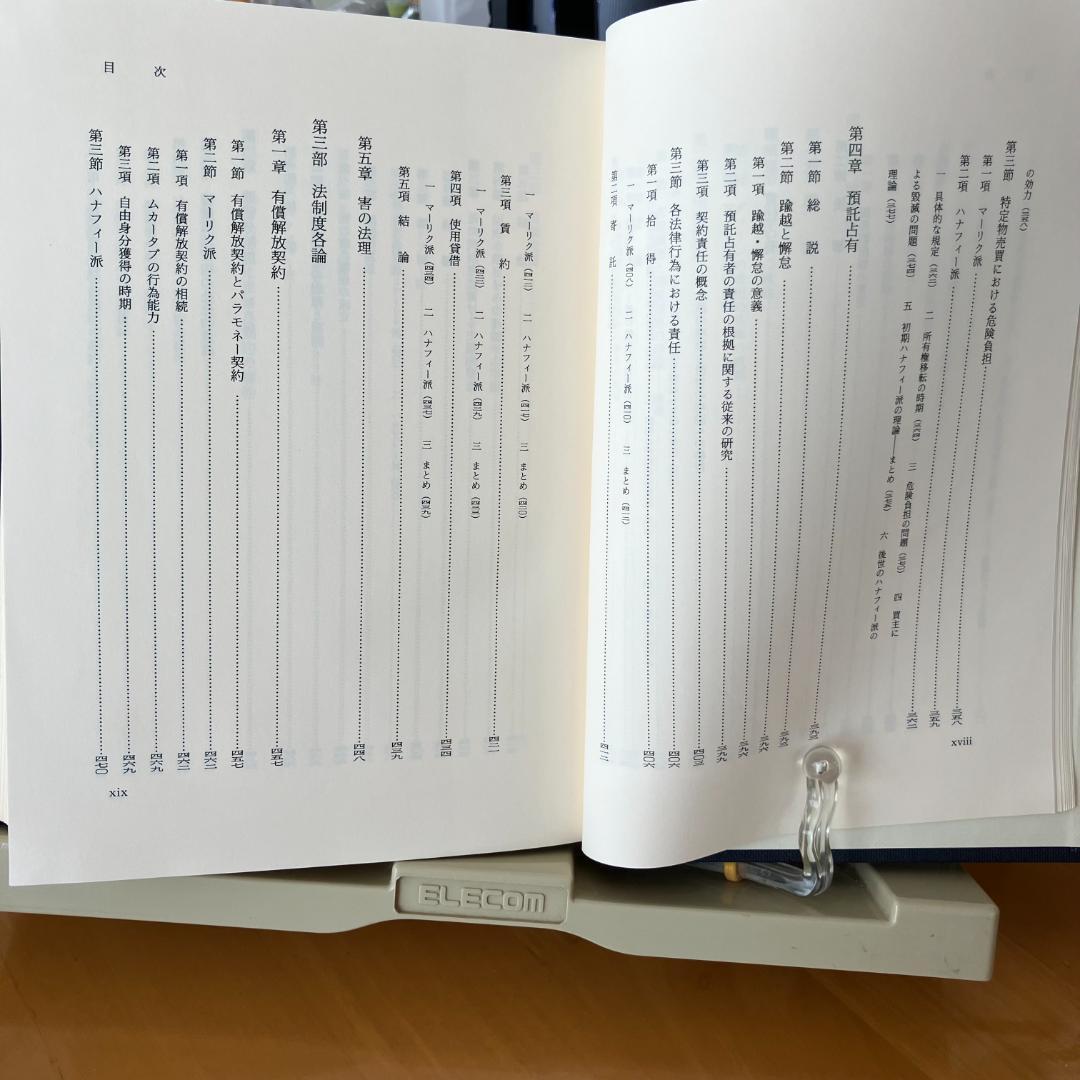 の効力(三五八)
第三節 特定物売買における危険負担
第一項 マーリク派 三五八
第二項 ハナフィー派 三五九
一 具体的な規定(三六二) 二 所有権移転の時期(三六四) 三 危険負担の問題(三七〇) 四 買主に
よる毀滅の問題(三七四) 五 初期ハナフィー派の理論――まとめ(三七六) 六 後世のハナフィー派の
理論(三七七)
第四章 預託占有
第一節 総説 三九三
第二節 踰越と懈怠 三九三
第一項 踰越・懈怠の意義 三九六
第二項 預託占有者の責任の根拠に関する従来の研究 三九六
第三項 契約責任の概念 三九九
第三節 各法律行為における責任 四〇三
第一項 拾得 四〇六
一 マーリク派(四〇八) 二 ハナフィー派(四一〇) 三 まとめ(四一二)
第二項 寄託 四一二
xviii
目次
一 マーリク派(四一二) 二 ハナフィー派(四一七) 三 まとめ(四二〇)
第三項 賃約 四二一
一 マーリク派(四二二) 二 ハナフィー派(四二九) 三 まとめ
第四項 使用貸借 四三四
一 マーリク派(四三四) 二 ハナフィー派(四三七) 三 まとめ(四三九)
第五項 結論 四三九
第五章 害の法理 四四八
第三部 法制度各論
第一章 有償解放契約 四五七
第一節 有償解放契約とパラモネー契約 四五七
第二節 マーリク派 四六二
第一項 有償解放契約の相続 四六二
第二項 ムカータブの行為能力 四六九
第三項 自由身分獲得の時期 四六九
第三節 ハナフィー派 四七〇
xix
ELECOM